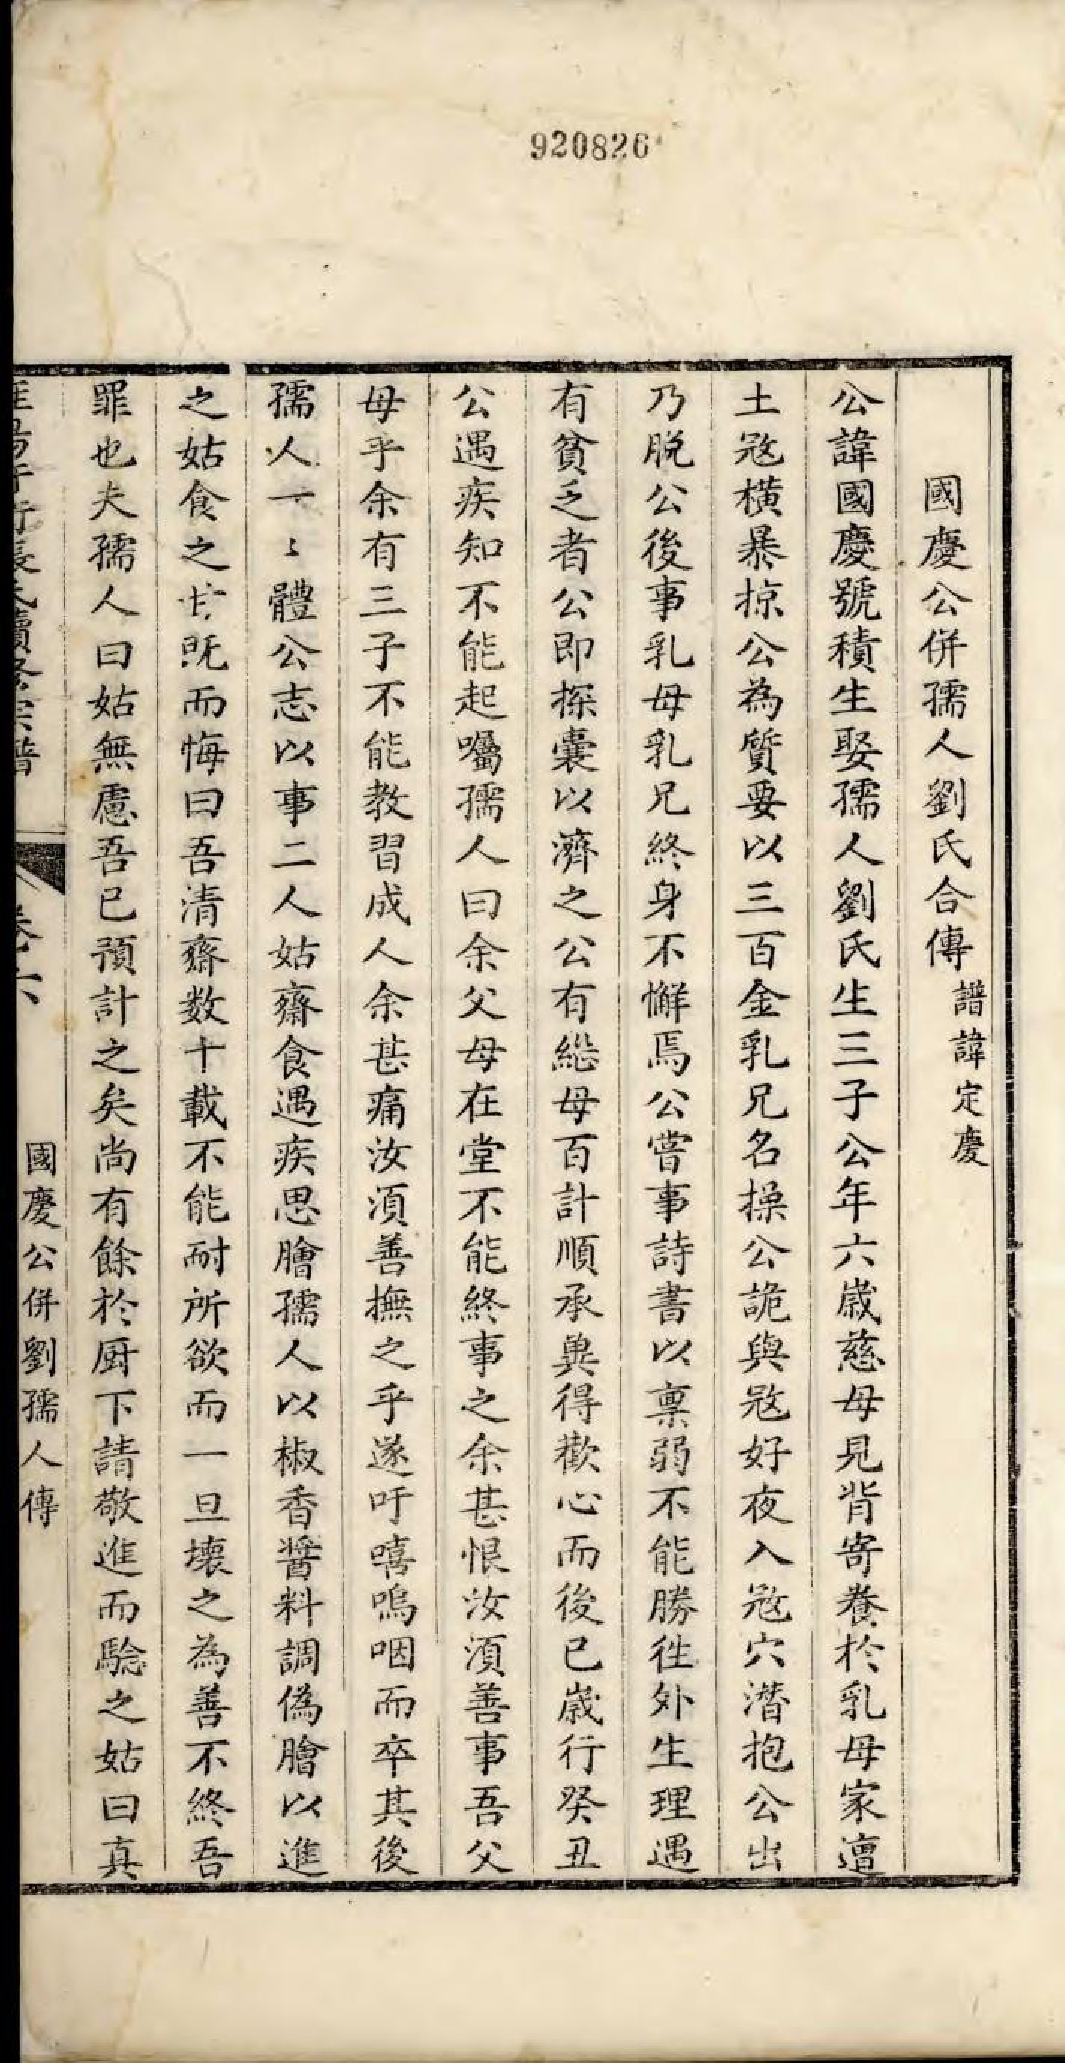 920826
國慶公併孺人劉氏合傳 譜諱定慶
公諱國慶號積生娶孺人劉氏生三子公年六歲慈母見背寄養於乳母家遭
土宼橫暴掠公為質要以三百金乳兄名操公詭與宼好夜入宼穴潛抱公出
乃脫公後事乳母乳兄終身不懈焉公嘗事詩書以稟弱不能勝徃外生理遇
有貧乏者公即探囊以濟之公有継母百計順承兾得歡心而後已歲行癸丑
公遇疾知不能起囑孺人曰余父母在堂不能終事之余甚恨汝須善事吾父
母乎余有三子不能教習成人余甚痛汝須善撫之乎遂吁嘻嗚咽而卒其後
孺人一々體公志以事二人姑齋食遇疾思膾孺人以椒香醬料調偽膾以進
之姑食之甘既而悔曰吾清齋数十載不能耐所欲而一旦壞之為善不終吾
罪也夫孺人曰姑無慮吾已預計之矣尚有餘於厨下請敬進而驗之姑曰真
長氏續修宗譜 卷六 國慶公併劉孺人傳